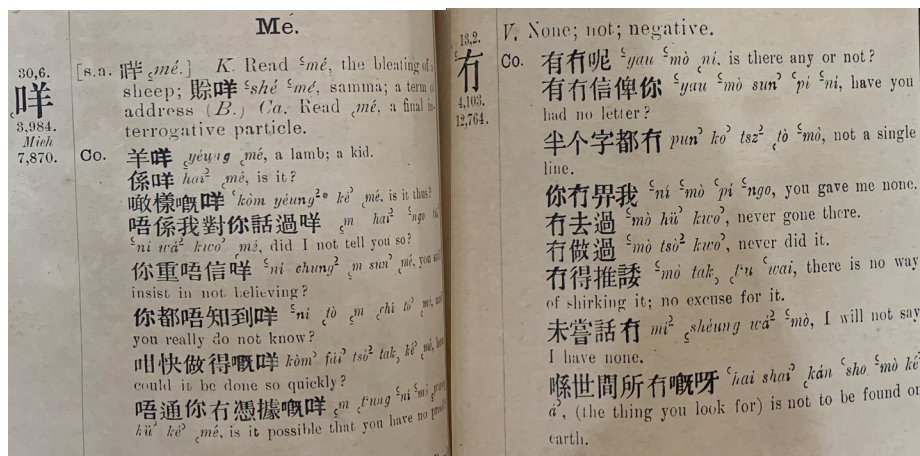 Mé.
30,6.
咩
3,984.
Mieh
7,870.
[s.a. 哶 ͺmé.] K. Read ʿmé, the bleating of a
sheep; 賒咩 ʿshé ʿmé, samma; a term of
address (B.) Ca. Read ͺmé, a final in-
terrogative particle.
Co. 羊咩 ͺyéung ͺmé, a lamb; a kid.
係咩 hai² ͺmé, is it?
噉樣嘅咩 ʿkòm yéung²* kéʾ ͺmé, is it thus?
唔係我對你話過咩 ͺm hai² ʿngo
ʿni wá² kwoʾ ͺmé, did I not tell you so?
你重唔信咩 ʿni chung² ͺm sunʾ ͺmé, you still
insist in not believing?
你都唔知到咩 ʿni ͺtò ͺm ͺchi tòʾ ͺmé,
you really do not know?
咁快做得嘅咩 kòmʾ fáiʾ tsò² tak, kéʾ ͺmé,
could it be done so quickly?
唔通你冇憑據嘅咩 ͺm ͺt‘ung ʿni ʿmò
küʾ kéʾ ͺmé, is it possible that you have no proof
13,2.
冇
4,103.
12,764.
V. None; not; negative.
Co. 有冇呢 ʿyau ʿmò ͺni, is there any or not?
有冇信俾你 ʿyau ʿmò sunʾ ʿpi ʿni, have you
had no letter?
半个字都冇 punʾ koʾ tsz² ͺtò ʿmò, not a single
line.
你冇畀我 ʿni ʿmò ʿpi ʿngo, you gave me none.
冇去過 ʿmò hüʾ kwoʾ, never gone there.
冇做過 ʿmò tsò² kwoʾ, never did it.
冇得推諉 ʿmò tak, ͺt‘u ʿwai, there is no way
of shirking it; no excuse for it.
未嘗話冇 mi² ͺshéung wá² ʿmò, I will not say
I have none.
喺世間所冇嘅呀 ʿhai shaiʾ ͺkán ʿsho ʿmò kéʾ
áʾ, (the thing you look for) is not to be found on
earth.